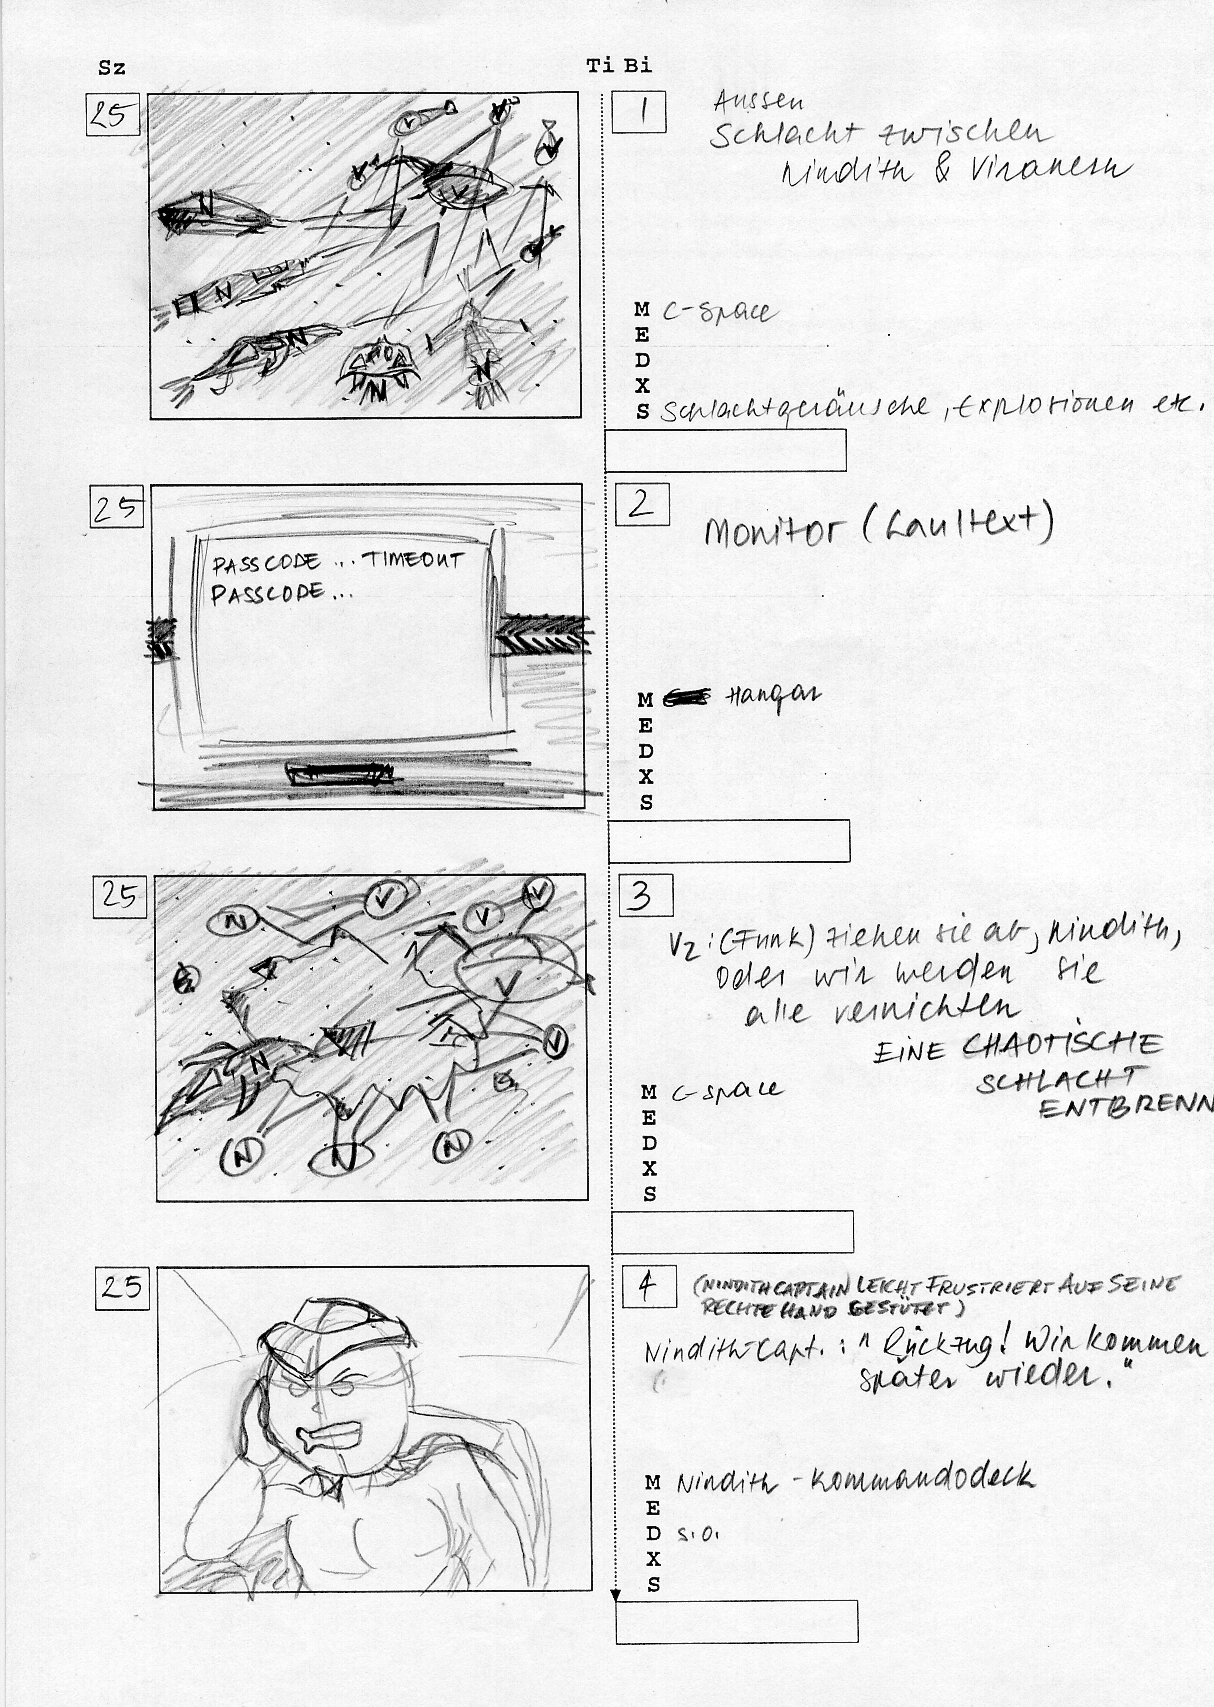 Sz
Ti Bi
25
1
Aussen
Schlacht zwischen
Nindith & Viranern
V
V
V
V
V
V
N
N
N
N
N
M C-Space
E
D
X
S Schlachtgeräusche, Explosionen etc.
25
2
Monitor (Lauftext)
PASSCODE ... TIMEOUT
PASSCODE ...
M Hangar
E
D
X
S
25
3
V2: (Funk) ziehen sie ab, Nindith,
oder wir werden sie
alle vernichten
EINE CHAOTISCHE
SCHLACHT
ENTBRENN
N
V
V
V
V
V
N
N
N
N
M C-Space
E
D
X
S
25
4
(NINDITHCAPTAIN LEICHT FRUSTRIERT AUF SEINE
RECHTE HAND GESTÜTZT)
Nindith-Capt.: "Rückzug! Wir kommen
später wieder."
M Nindith - Kommandodeck
E
D s.o.
X
S